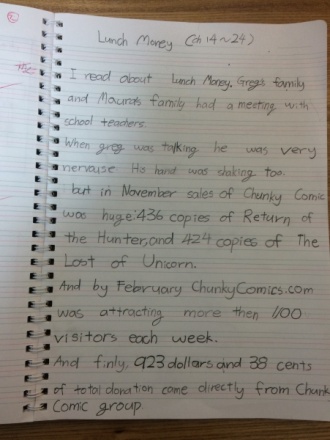 Lunch Money (ch 14~24)
I read about Lunch Money. Greg's family
and Maura's family had a meeting with
school teachers.
When greg was talking he was very
nervouse His hand was shaking too.
but in November sales of Chunky Comic
was huge: 436 copies of Return of
the Hunter, and 424 copies of The
Lost of Unicorn.
And by February ChunkyComics.com
was attracting more then 1100
visitors each week.
And finly, 923 dollars and 38 cents
of total donation came directly from Chunk
Comic group.